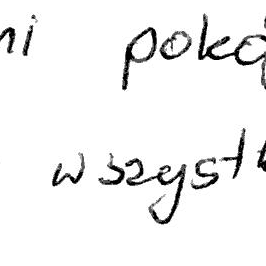 ni poko
wszystk